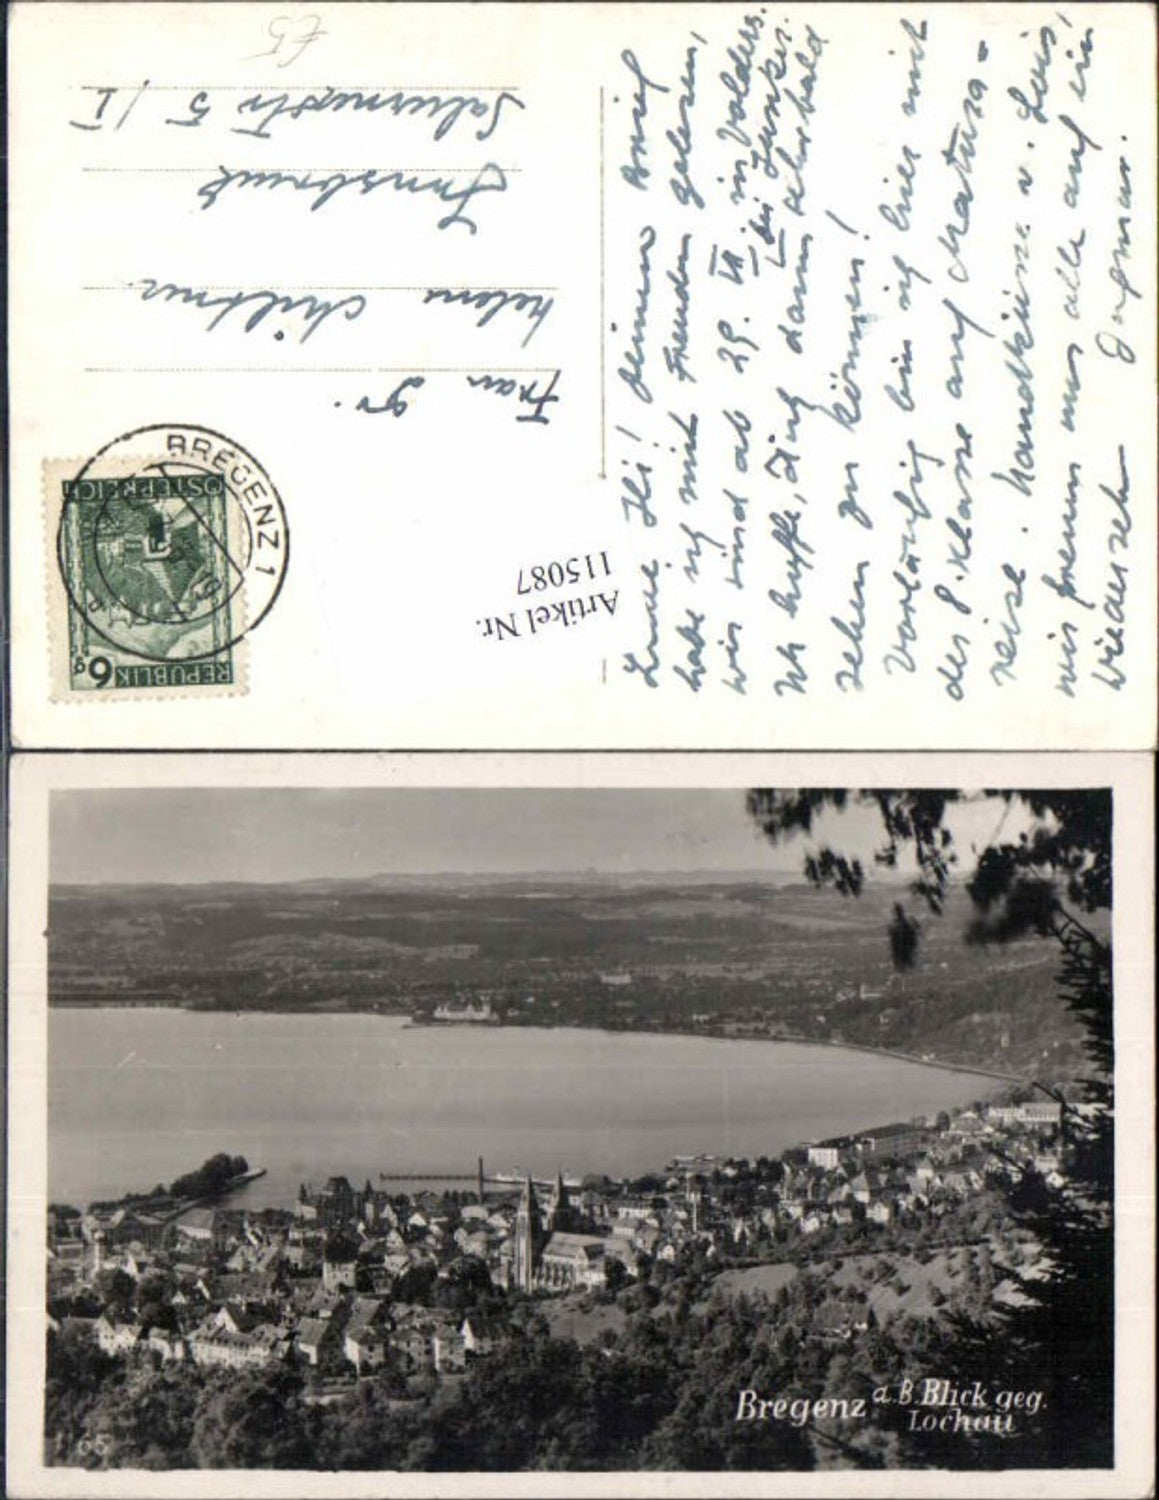 Liebe Ili! Deinen Brief
habe ich mit Freuden gelesen,
wir sind ab 29. VII. in Volders
bei Junker.
Ich hoffe, Dich dann sehr bald
sehen zu können!
Vorläufig bin ich hier mit
der 8. Klasse auf Matura-
reise. Handküsse u. Luis,
wir freuen uns alle auf ein
Wiedersehen Dagmar.
Frau Gr.
Helene
Innsbruck
Salurnerstr 5/I
£5
BREGENZ 1
REPUBLIK
ÖSTERREICH
6 g
Artikel Nr.
115087
Bregenz a.B. Blick geg.
Lochau
65